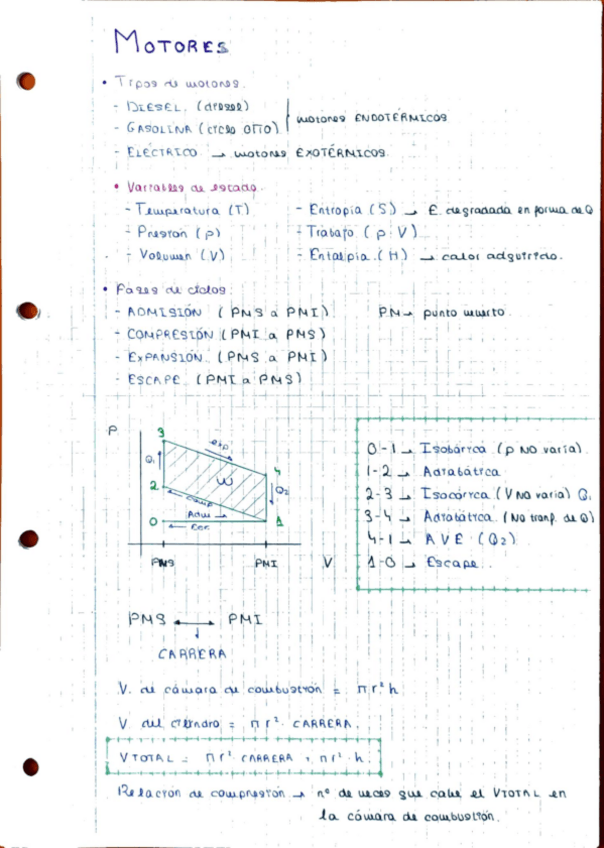 MOTORES
• Tipos de motores.
- DIESEL. (diesel)
- GASOLINA (ciclo OTTO) motores ENDOTÉRMICOS
- ELÉCTRICO → motores EXOTÉRMICOS.
• Variables de estado.
- Temperatura (T) - Entropía (S) → E degradada en forma de Q
- Presión (p) - Trabajo (p·V)
- Volumen (V) - Entalpía (H) → calor adquirido.
• Fases de ciclos:
- ADMISIÓN (PMS a PMI) PM → punto muerto.
- COMPRESIÓN (PMI a PMS)
- EXPANSIÓN (PMS a PMI)
- ESCAPE (PMI a PMS)
P
3
exp
Q1
4
2
W
Q2
comp
Adm →
0
← Esc
1
PMS PMI V
0-1 → Isobárica (p NO varía)
1-2 → Adiabática
2-3 → Isocórica (V NO varía) Q1
3-4 → Adiabática (No tranf. de Q)
4-1 → AVE (Q2)
1-0 → Escape.
PMS ↔ PMI
↓
CARRERA
V. de cámara de combustión = πr²h
V del cilindro = πr². CARRERA.
VTOTAL = πr² CARRERA + πr²·h.
Relación de compresión → nº de veces que cabe el VTOTAL en
la cámara de combustión.